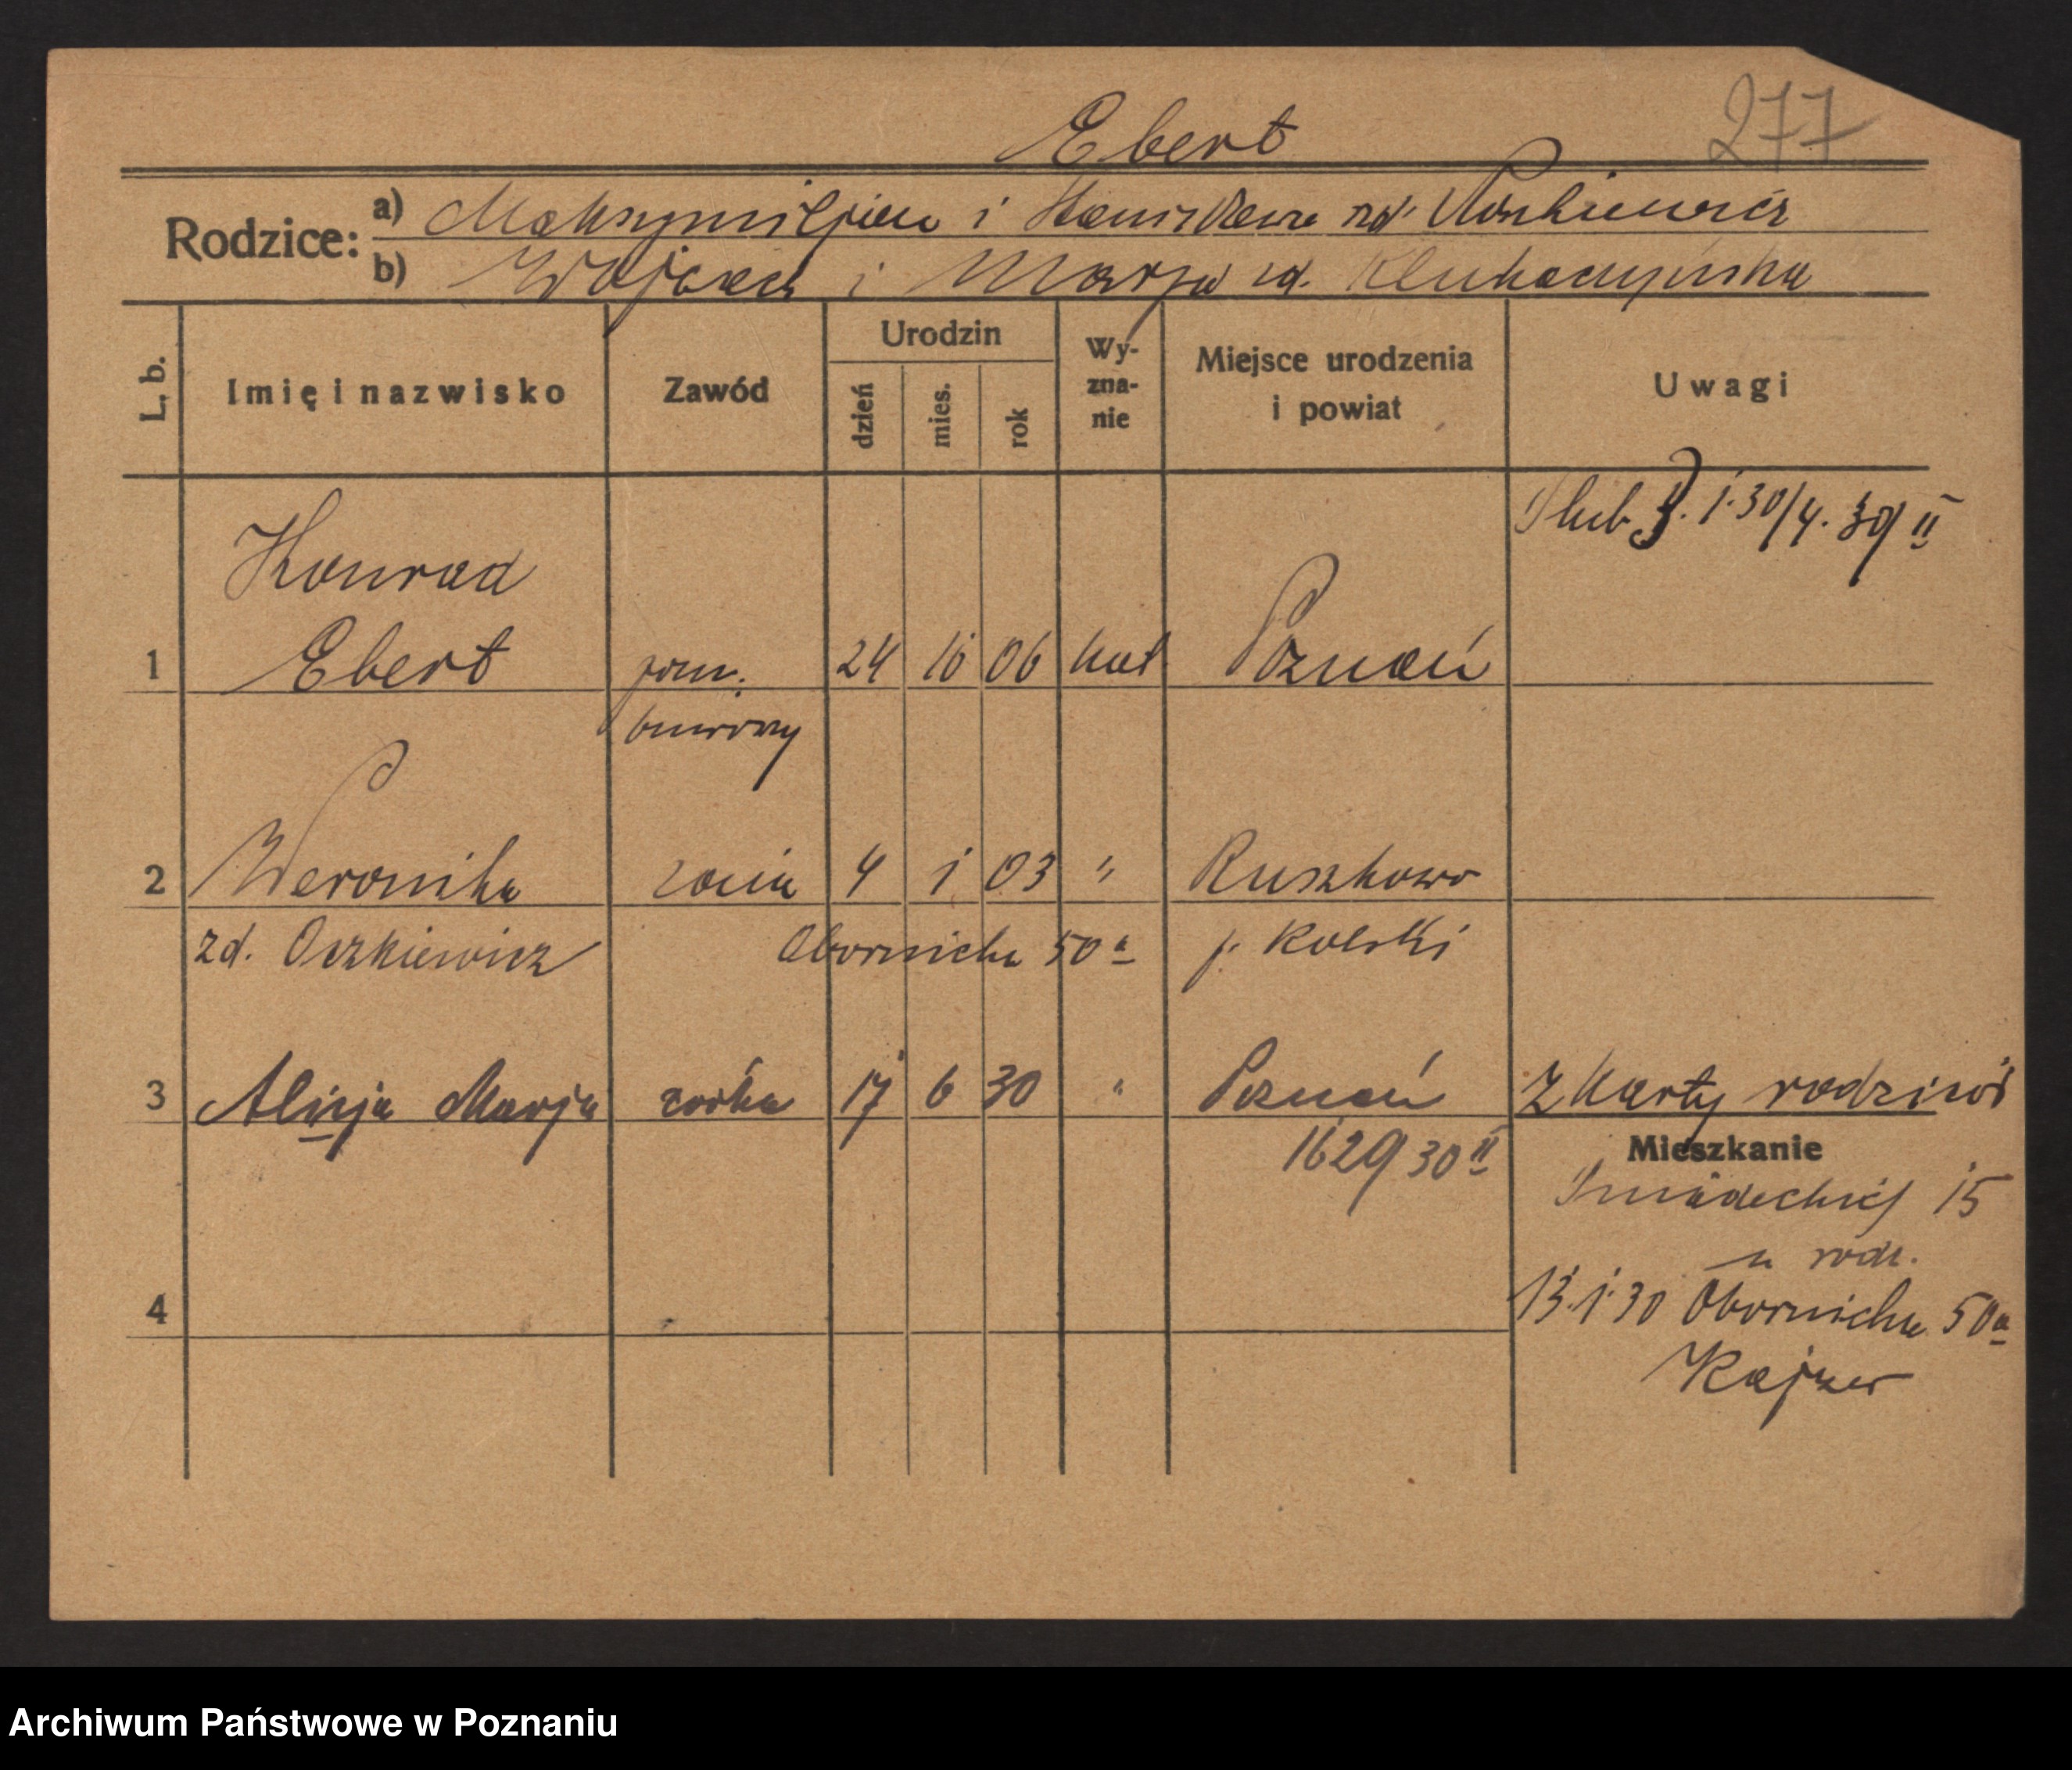 277
Ebert
Rodzice: a) Maksymiljan i Stanisława zd.
b) Wojciech i Marja zd.
L. b. Imię i nazwisko Zawód Urodzin dzień mies. rok Wy-zna-nie Miejsce urodzenia i powiat Uwagi
Ślub 7. 1. 30/4. 30 II
Konrad
1 Ebert pom. 24 10 06 kat. Poznań
biurowy
2 Weronika żona 4 1 03 " Ruszkowo
zd. Oszkiewicz Obornicka 50a p. Kolski
3 Alicja Marja córka 17 6 30 " Poznań Z karty rodziców
1629 30 II Mieszkanie
Śniadeckich 15
u rodz.
4 13.1.30 Obornicka 50a
Kajzer
Archiwum Państwowe w Poznaniu